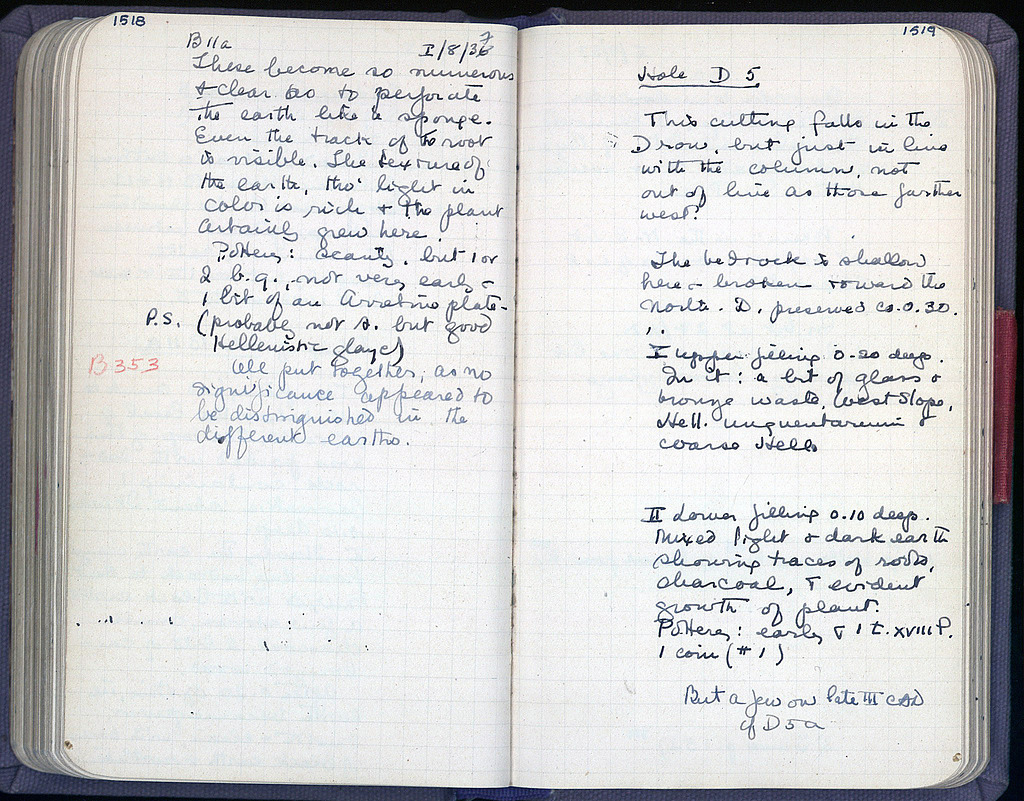 1518
B 11a I/8/37
These become so numerous
+ clear as to perforate
the earth like a sponge.
Even the track of the root
is visible. The texture of
the earth, tho' light in
color is rich + the plant
certainly grew here.
Pottery: scanty, but 1 or
2 b.g., not very early +
1 bit of an Arretine plate-
P.S. (probably not A. but good
Hellenistic glaze)
B353
All put together, as no
significance appeared to
be distinguished in the
different earths.
1519
Hole D 5
This cutting falls in the
D row, but just in line
with the column, not
out of line as those farther
west.
The bedrock is shallow
here + broken toward the
north. D. preserved ca. 0.30.
I upper filling 0.20 deep.
In it: a bit of glass +
bronze waste, West Slope,
Hell. unguentarium +
coarse Hell.
II Lower filling 0.10 deep.
Mixed light + dark earth
showing traces of roots,
charcoal, + evident
growth of plant.
Pottery: early + 1 E. XVIII P.
1 coin (#1)
But a few on late III
of D5a